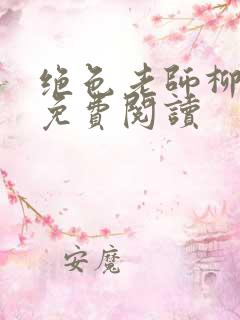 绝色老师柳
免費閱讀
安魔